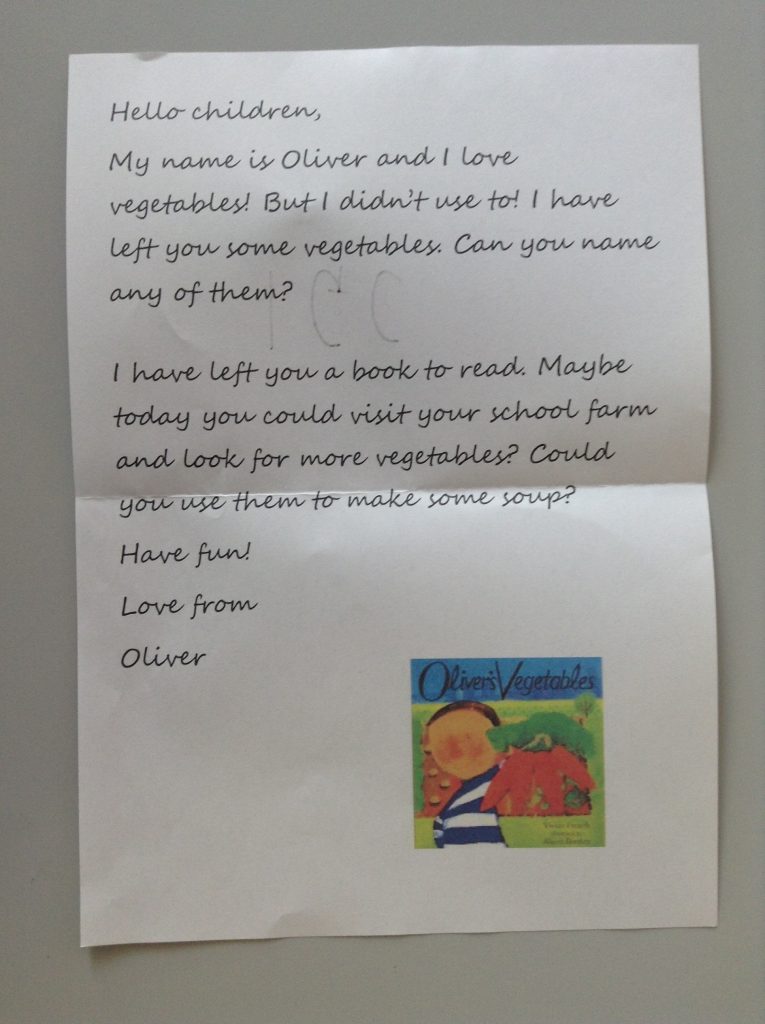 Hello children,
My name is Oliver and I love
vegetables! But I didn't use to! I have
left you some vegetables. Can you name
any of them?
I have left you a book to read. Maybe
today you could visit your school farm
and look for more vegetables? Could
you use them to make some soup?
Have fun!
Love from
Oliver
Oliver's Vegetables